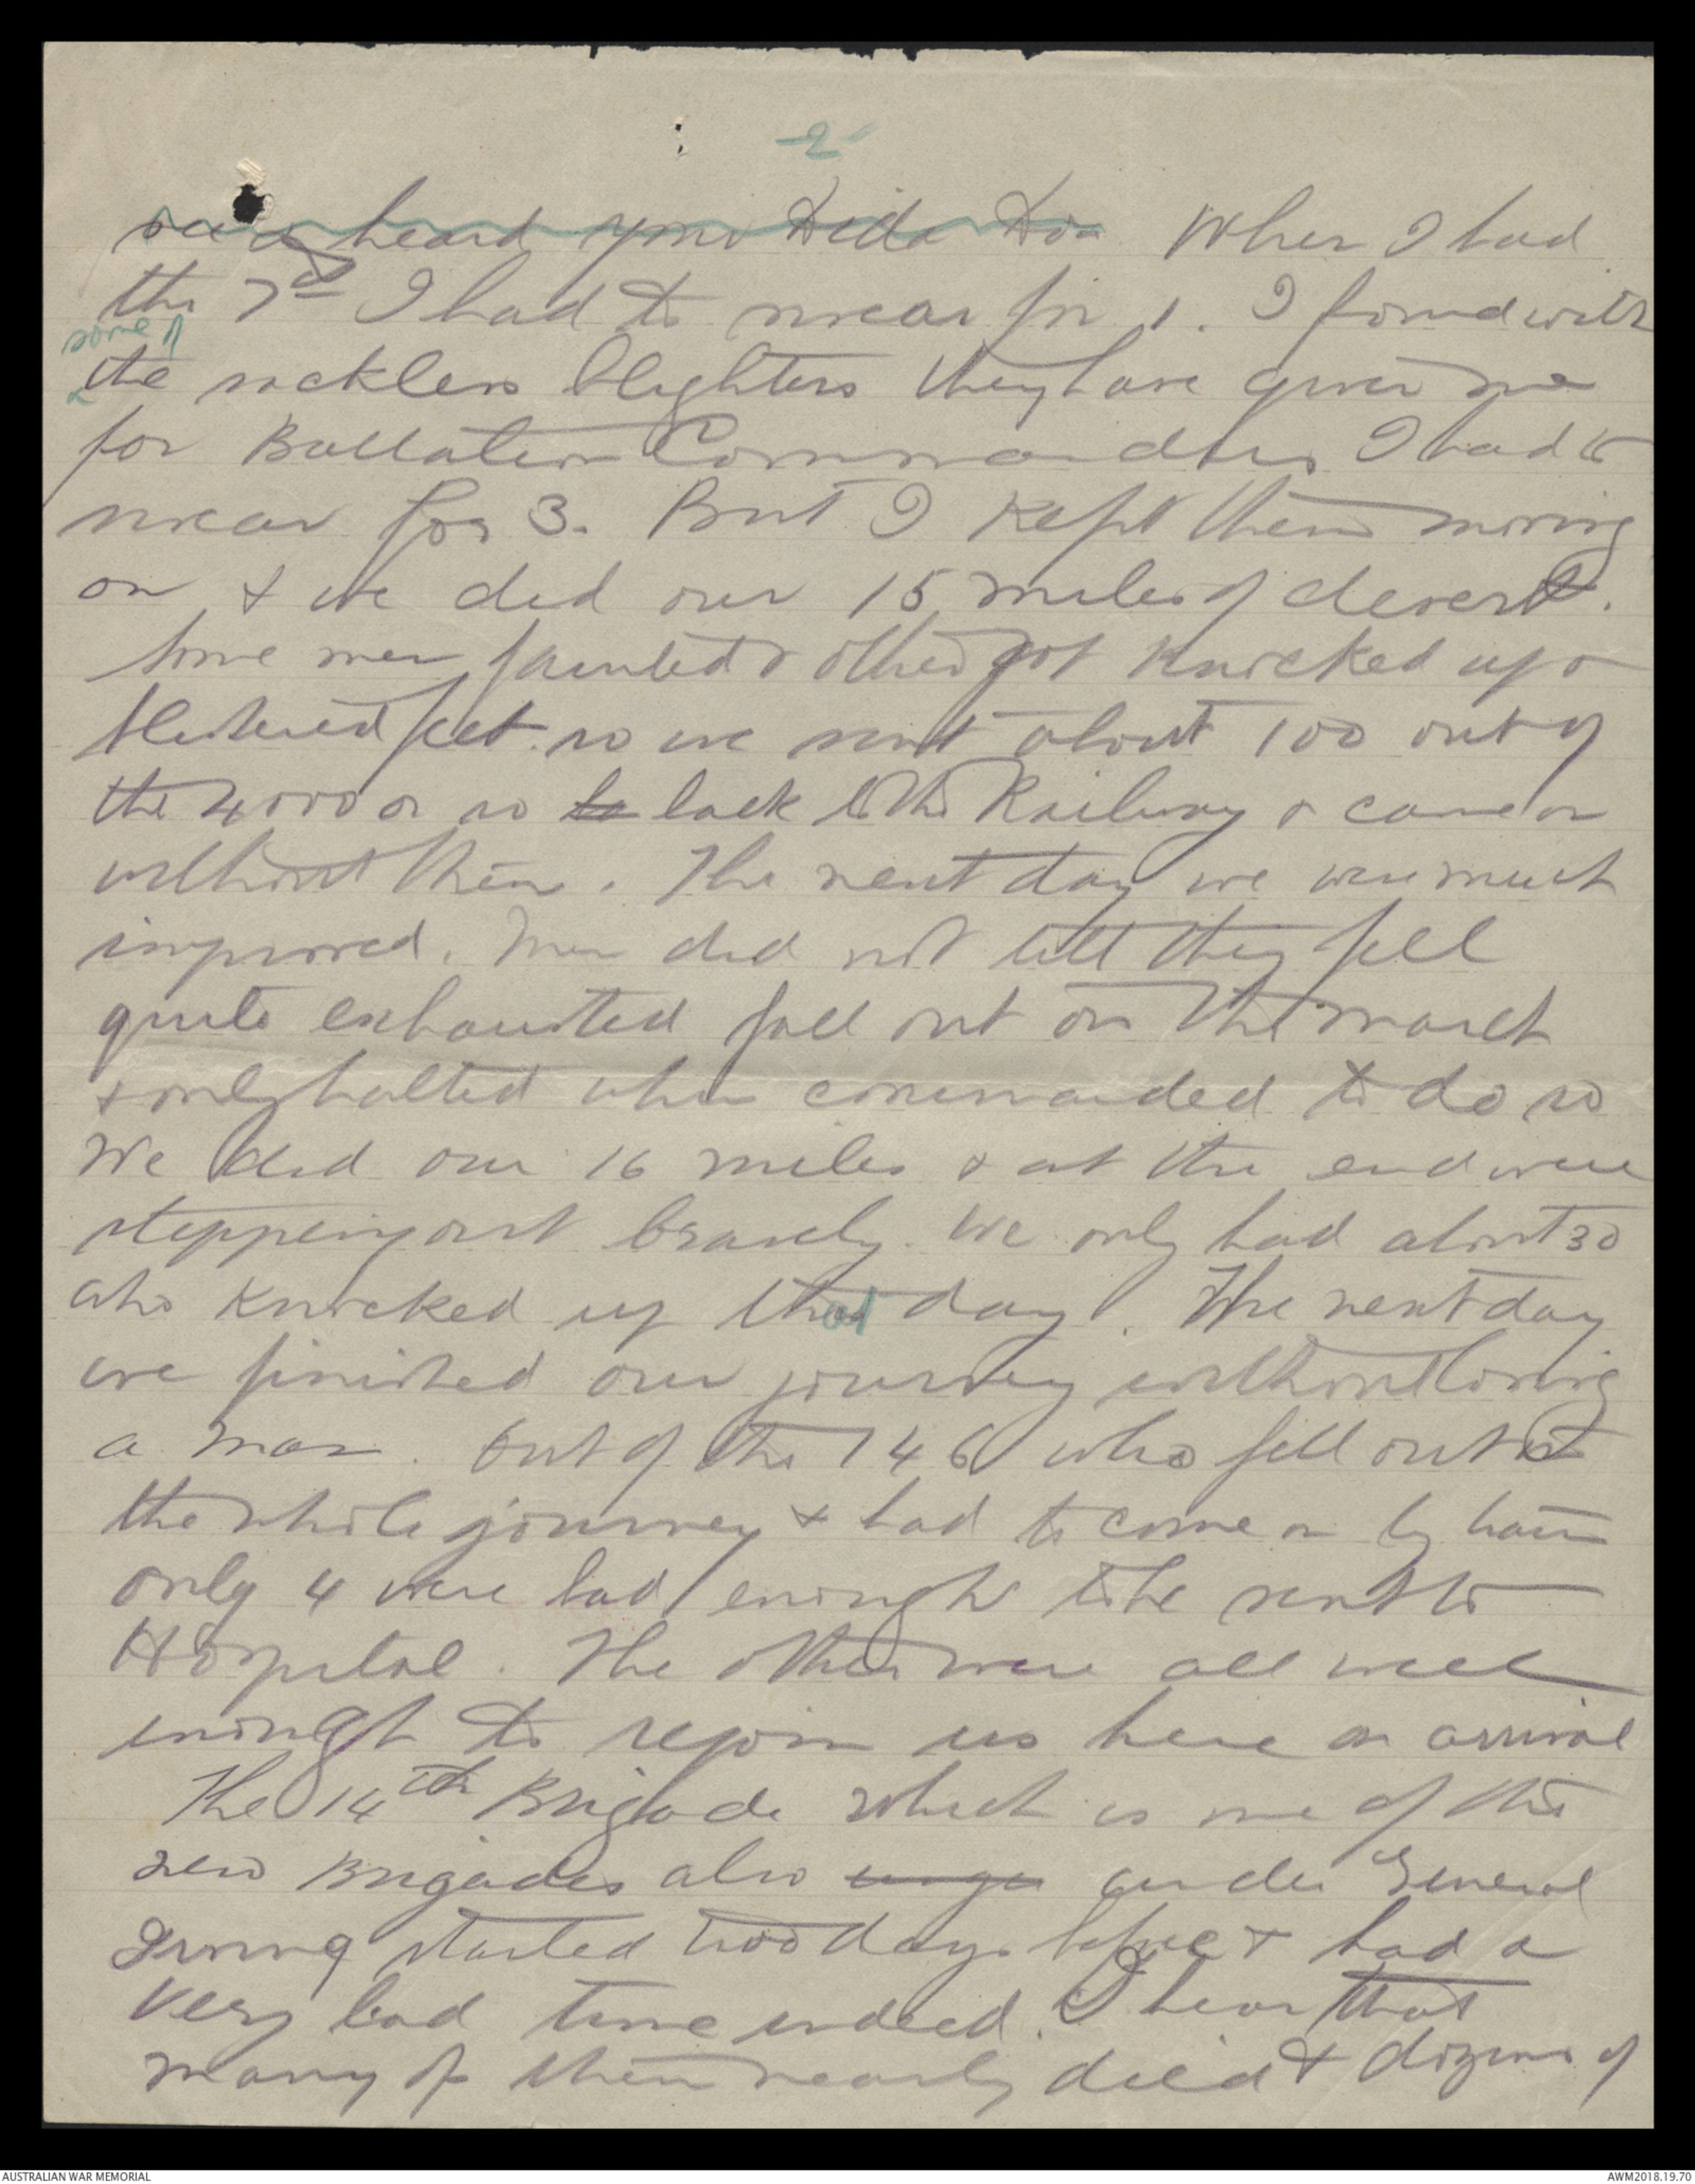 -2-
heard your Dida When I had
the 7th I had to swear for 1. I found with
some of
the reckless blighters they have given me
for Battalion Commanders I had to
swear for 3. But I kept them moving
on & we did our 15 miles of desert.
Some men fainted & others got knocked up &
blistered feet so we sent about 100 out of
the 4000 or so to back to the Railway & came on
without them. The next day we were much
improved. Men did not till they fell
quite exhausted fall out on the march
& only halted when commanded to do so
We did our 16 miles & at the end were
stepping out bravely. We only had about 30
who knocked up that day. The next day
we finished our journey without losing
a man. Out of the 146 who fell out
the whole journey & had to come on by train
only 4 were bad enough to be sent to
Hospital. The others were all well
enough to rejoin us here on arrival
The 14th Brigade which is one of the
new Brigades also under General
Irving started two days before & had a
very bad time indeed. I hear that
many of them nearly died & dozens of
AUSTRALIAN WAR MEMORIAL
AWM2018.19.70